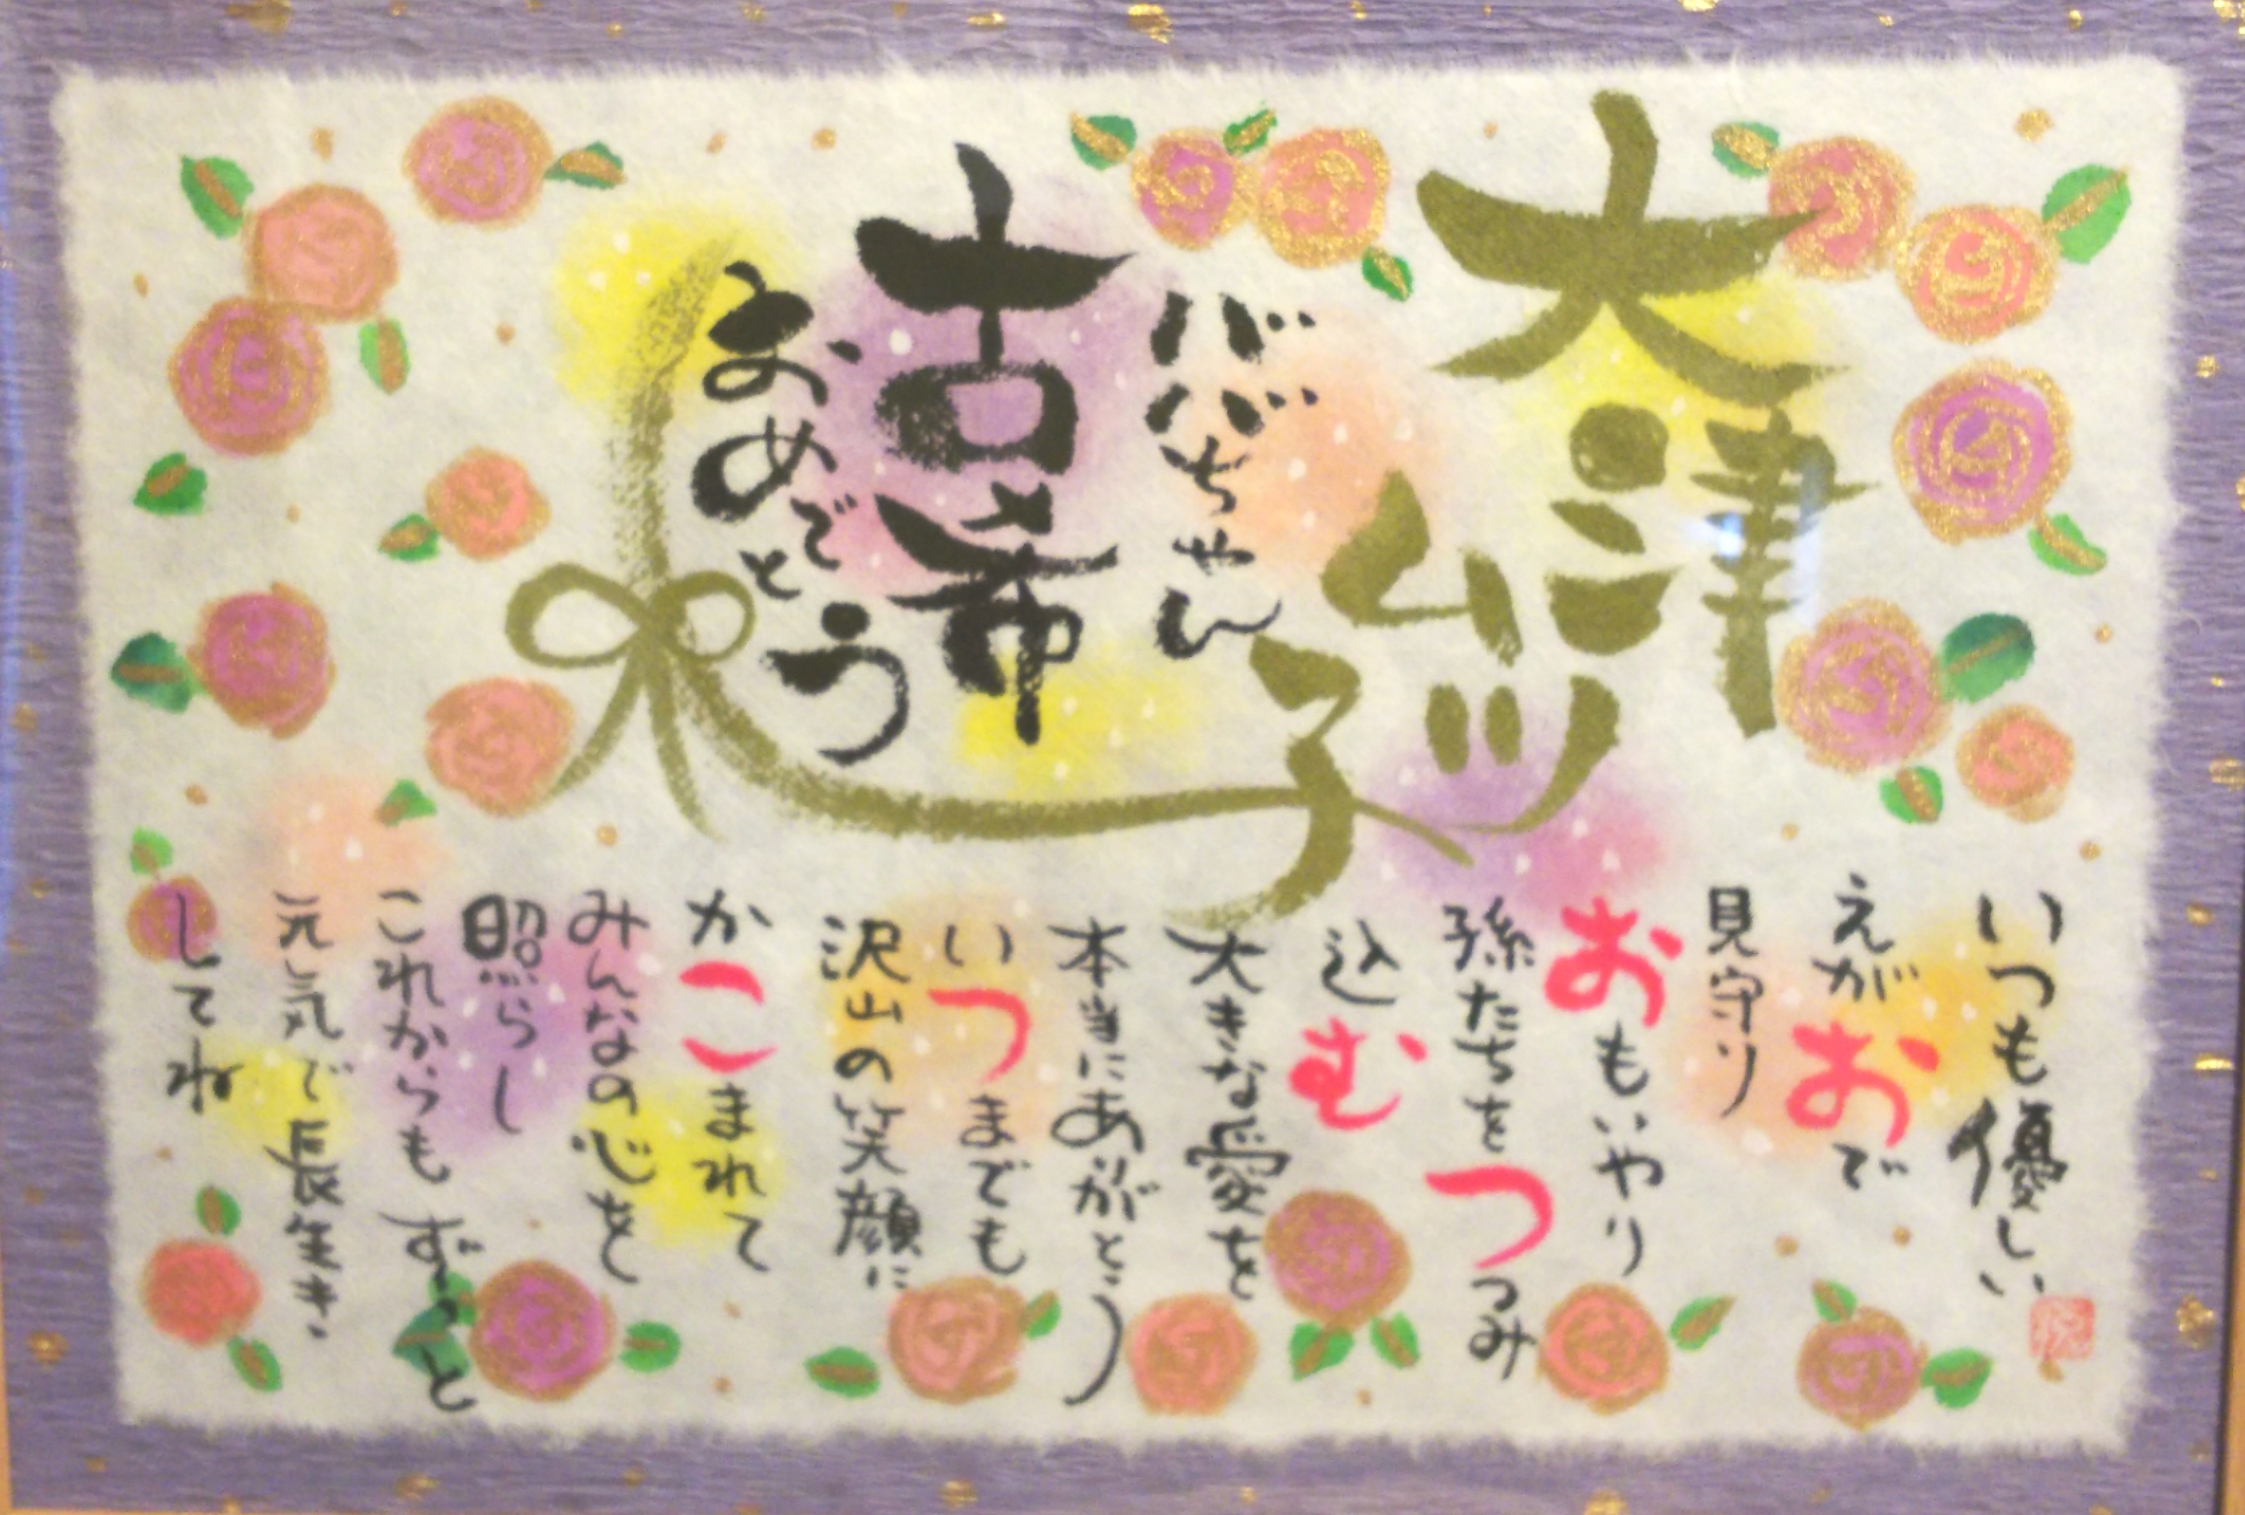 大津
ムツ子
ババちゃん
古希
おめでとう
いつも優しい
えがおで
見守り
おもいやり
孫たちをつつみ
込む
大きな愛を
本当にありがとう
いつまでも
沢山の笑顔に
かこまれて
みんなの心を
照らし
これからもずっと
元気で長生き
してね
悦